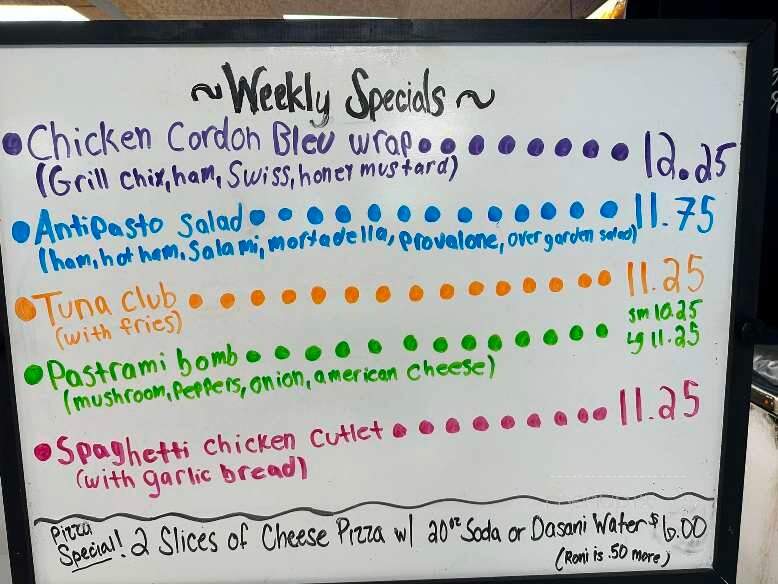 ~Weekly Specials~
Chicken Cordon Bleu wrap 12.25
(Grill chix, ham, Swiss, honey mustard)
Antipasto Salad 11.75
(ham, hot ham, Salami, mortadella, provalone, over garden salad)
Tuna club 11.25
(with fries)
sm 10.25
Pastrami bomb lg 11.25
(mushroom, Peppers, onion, american cheese)
Spaghetti chicken cutlet 11.25
(with garlic bread)
Pizza Special! 2 Slices of Cheese Pizza w/ 20oz Soda or Dasani Water $6.00
(Roni is .50 more)